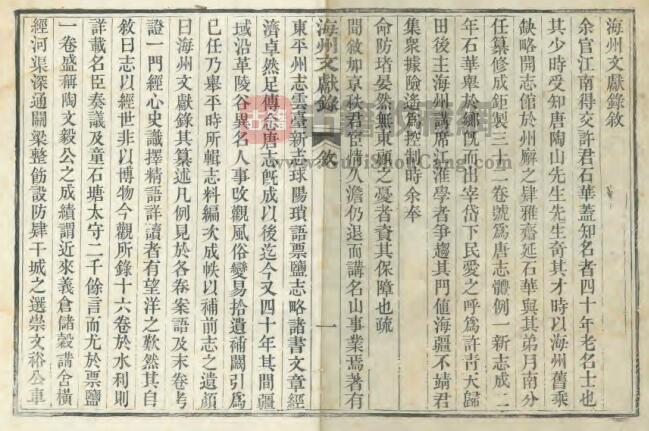 海州文獻錄敘
余官江南得交許君石華蓋知名者四十年老名士也
其少時受知唐陶山先生先生奇其才時以海州舊乘
缺略開志館於州廨之肆雅齋延石華與其弟月南分
任纂修成鉅製三十二卷號爲唐志體例一新志成二
年石華舉於鄉旣而出宰岱下民愛之呼爲許靑天歸
田後主海州講席江淮學者爭趨其門値海疆不靖君
集衆據險遙爲控制時余奉
命防堵晏然無東顧之憂者資其保障也疏
聞敘加京秩君宦情久澹仍退而講名山事業焉著有
海州文獻錄 敘 一
東平州志雲臺新志球陽瑣語票鹽志略諸書文章經
濟卓然足傳念唐志旣成以後迄今又四十年其間疆
域沿革陵谷異名人事改觀風俗變易拾遺補闕引爲
已任乃舉平時所輯志料編次成帙以補前志之遺顏
曰海州文獻錄其纂述凡例見於各卷案語及末卷考
證一門經心史識擇精語詳讀者有望洋之歎然其自
敘曰志以經世非以博物今觀所錄十六卷於水利則
詳載名臣奏議及童石塘太守二千餘言而尤於票鹽
一卷盛稱陶文毅公之成績謂近來義倉儲穀講舍橫
經河渠深通關梁整飭設防肆干城之選崇文裕公車
古籍收藏網
www.GujiShouCang.com